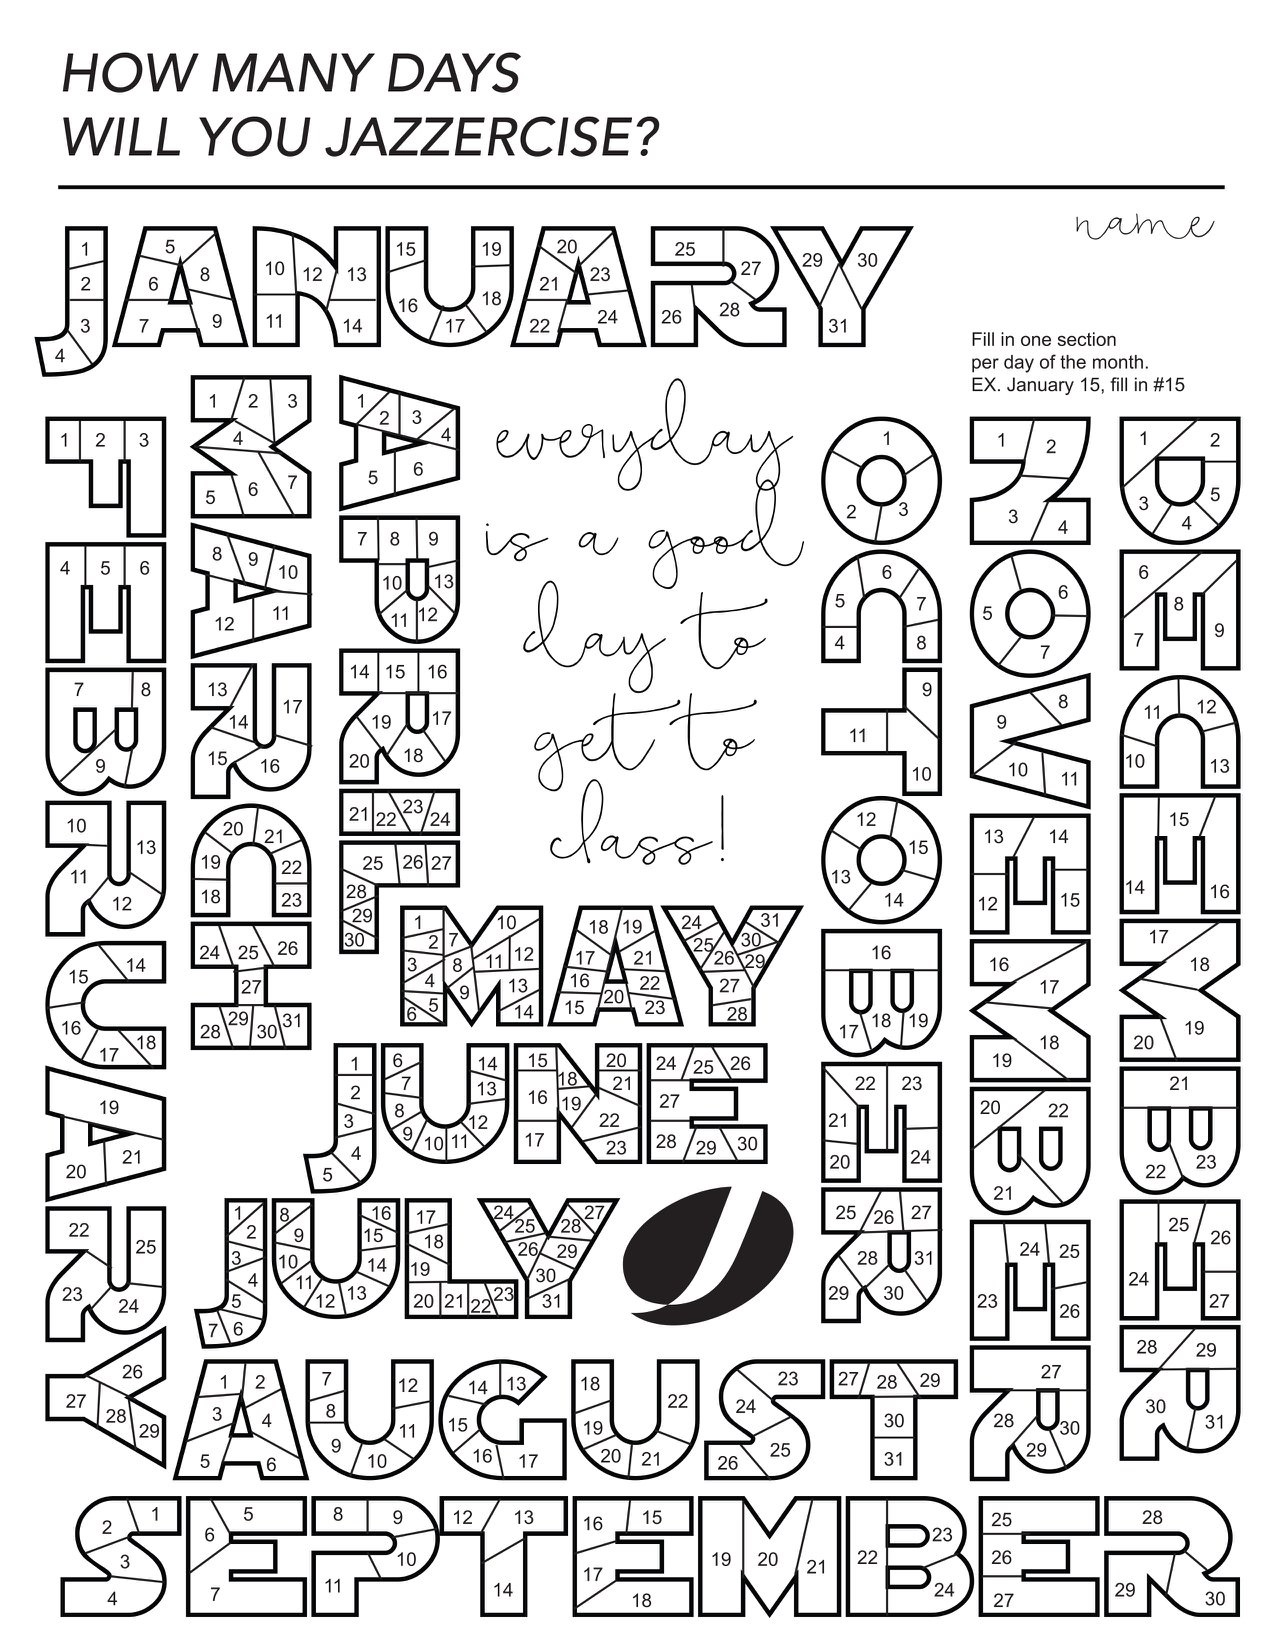 HOW MANY DAYS
WILL YOU JAZZERCISE?
name
JANUARY
1 2 3 4 5 6 7 8 9 10 11 12 13 14 15 16 17 18 19 20 21 22 23 24 25 26 27 28 29 30 31
Fill in one section
per day of the month.
EX. January 15, fill in #15
FEBRUARY
1 2 3 4 5 6 7 8 9 10 11 12 13 14 15 16 17 18 19 20 21 22 23 24 25 26 27 28 29
MARCH
1 2 3 4 5 6 7 8 9 10 11 12 13 14 15 16 17 18 19 20 21 22 23 24 25 26 27 28 29 30 31
APRIL
1 2 3 4 5 6 7 8 9 10 11 12 13 14 15 16 17 18 19 20 21 22 23 24 25 26 27 28 29 30
everyday
is a good
day to
get to
class!
MAY
1 2 3 4 5 6 7 8 9 10 11 12 13 14 15 16 17 18 19 20 21 22 23 24 25 26 27 28 29 30 31
JUNE
1 2 3 4 5 6 7 8 9 10 11 12 13 14 15 16 17 18 19 20 21 22 23 24 25 26 27 28 29 30
JULY
1 2 3 4 5 6 7 8 9 10 11 12 13 14 15 16 17 18 19 20 21 22 23 24 25 26 27 28 29 30 31
AUGUST
1 2 3 4 5 6 7 8 9 10 11 12 13 14 15 16 17 18 19 20 21 22 23 24 25 26 27 28 29 30 31
SEPTEMBER
1 2 3 4 5 6 7 8 9 10 11 12 13 14 15 16 17 18 19 20 21 22 23 24 25 26 27 28 29 30
OCTOBER
1 2 3 4 5 6 7 8 9 10 11 12 13 14 15 16 17 18 19 20 21 22 23 24 25 26 27 28 29 30 31
NOVEMBER
1 2 3 4 5 6 7 8 9 10 11 12 13 14 15 16 17 18 19 20 22 21 23 24 25 26 27 28 29 30
DECEMBER
1 2 3 4 5 6 7 8 9 10 11 12 13 14 15 16 17 18 19 20 21 22 23 24 25 26 27 28 29 30 31